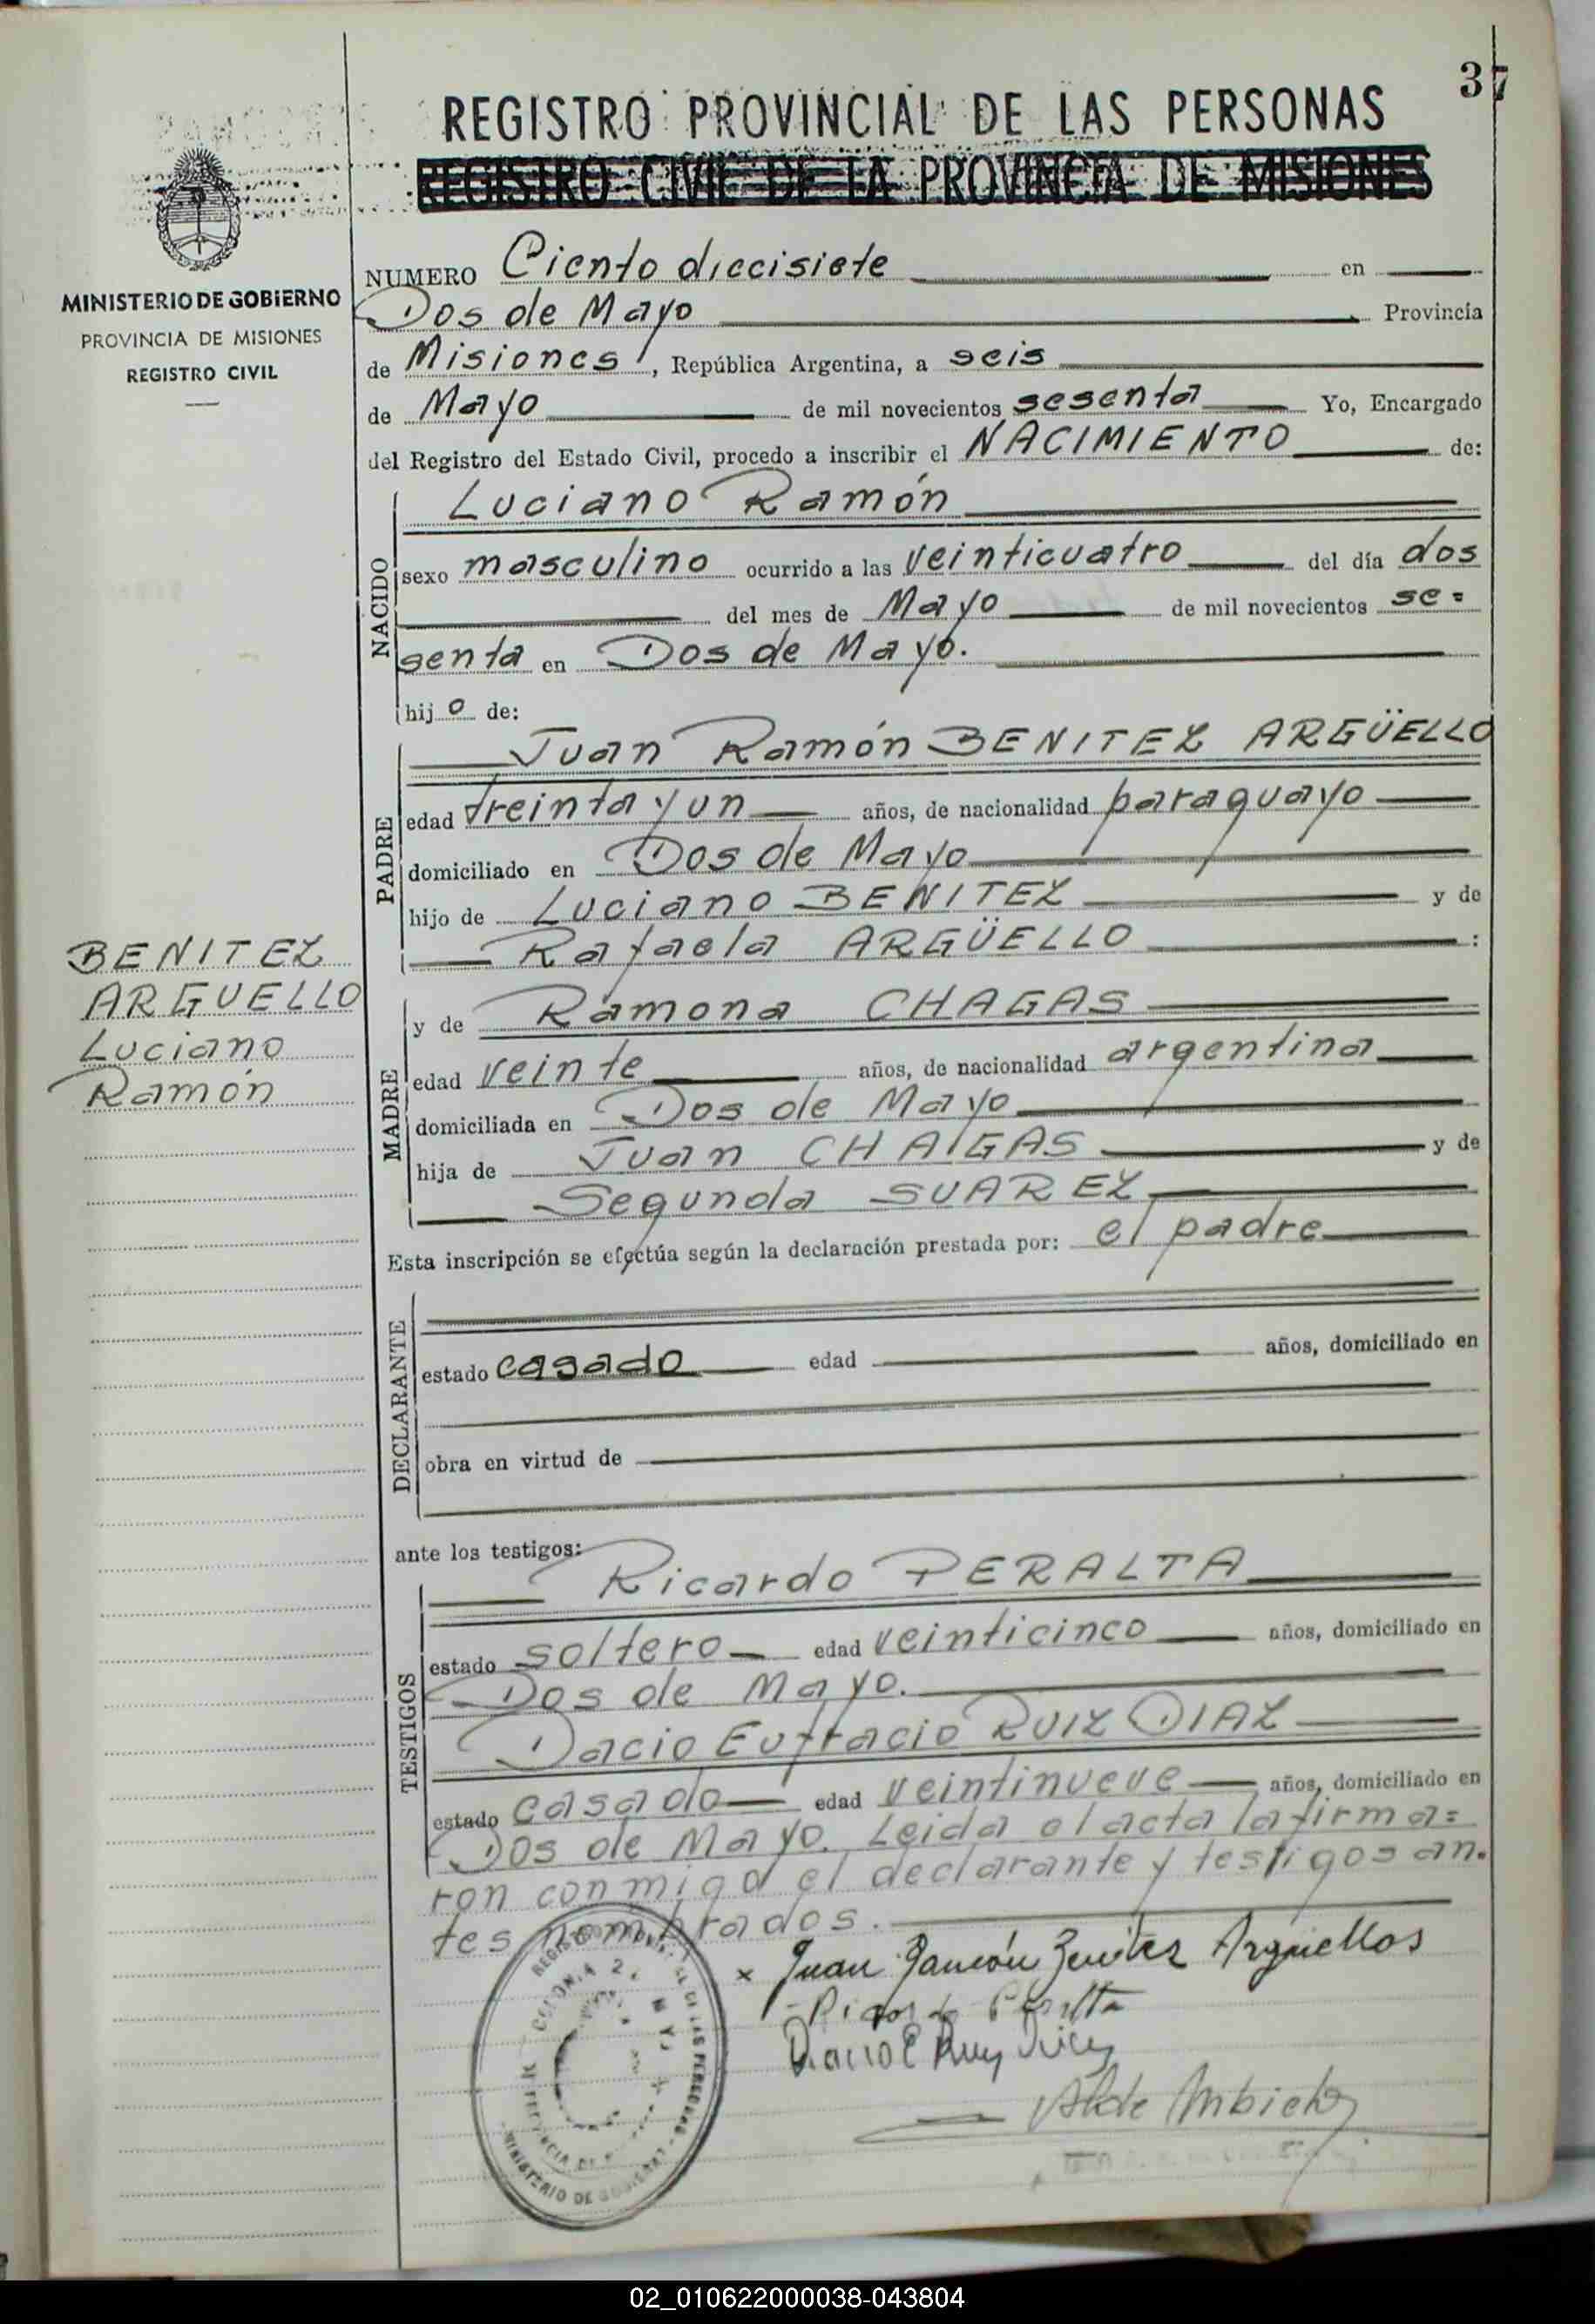 37
REGISTRO PROVINCIAL DE LAS PERSONAS
REGISTRO CIVIL DE LA PROVINCIA DE MISIONES
MINISTERIO DE GOBIERNO
PROVINCIA DE MISIONES
REGISTRO CIVIL
NUMERO Ciento diecisiete en
Dos de Mayo Provincia
de Misiones, República Argentina, a seis
de Mayo de mil novecientos sesenta Yo, Encargado
del Registro del Estado Civil, procedo a inscribir el NACIMIENTO de:
NACIDO
Luciano Ramón
sexo masculino ocurrido a las veinticuatro del día dos
del mes de Mayo de mil novecientos se=
senta en Dos de Mayo.
hijo de:
PADRE
Juan Ramón BENITEZ ARGÜELLO
edad treinta y un años, de nacionalidad paraguayo
domiciliado en Dos de Mayo
hijo de Luciano BENITEZ y de
Rafaela ARGÜELLO :
BENITEZ
ARGUELLO
Luciano
Ramón
MADRE
y de Ramona CHAGAS
edad veinte años, de nacionalidad argentina
domiciliada en Dos de Mayo
hija de Juan CHAGAS y de
Segunda SUAREZ
Esta inscripción se efectúa según la declaración prestada por: el padre
DECLARANTE
estado casado edad años, domiciliado en
obra en virtud de
ante los testigos:
TESTIGOS
Ricardo PERALTA
estado soltero edad veinticinco años, domiciliado en
Dos de Mayo.
Dacio Eufracio RUIZ DIAZ
estado casado edad veintinueve años, domiciliado en
Dos de Mayo. Leida el acta la firma=
ron conmigo el declarante y testigos an.
tes nombrados.
x Juan Ramón Benítez Arguellos
MINISTERIO DE
02_010622000038-043804